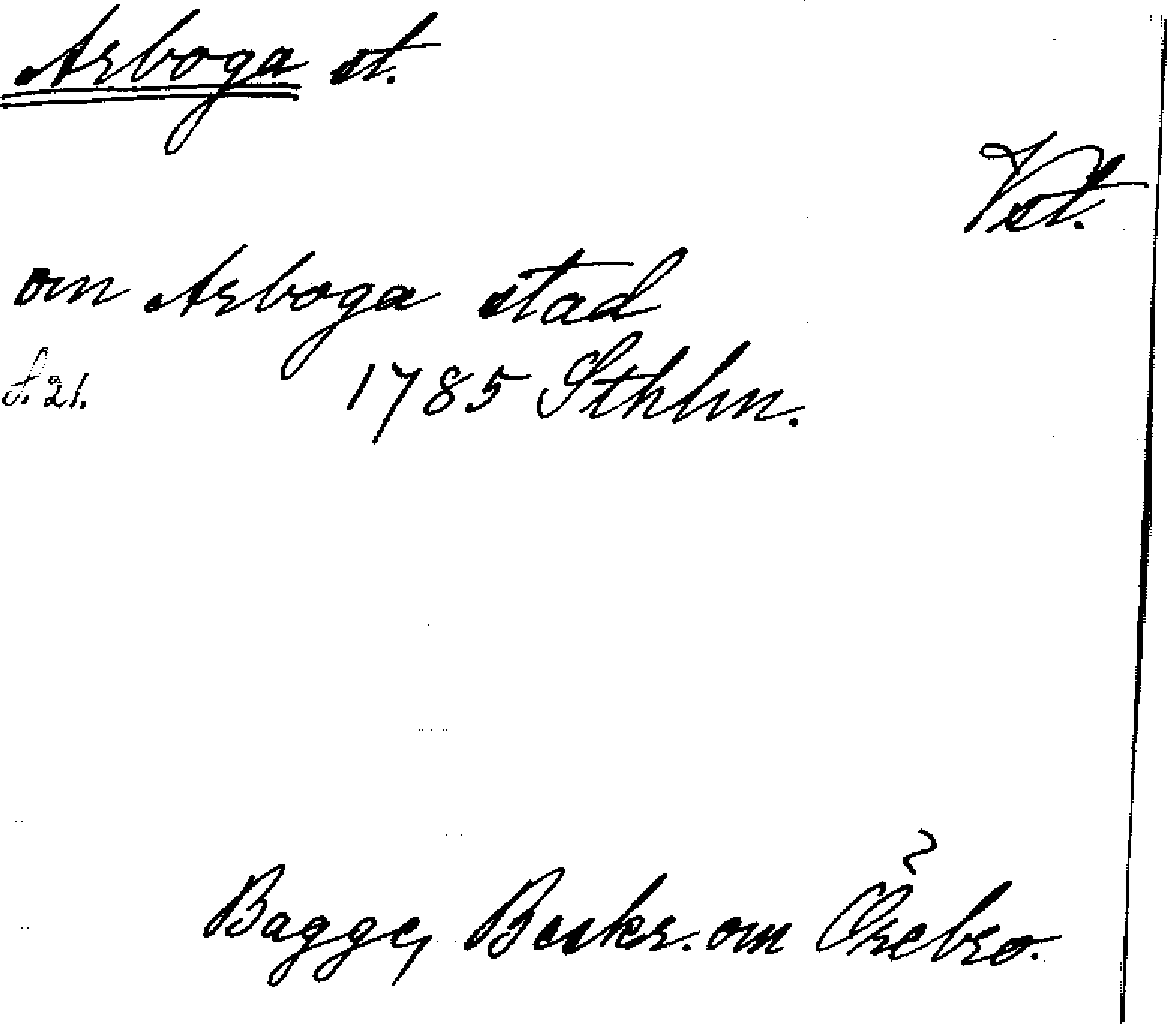 Arboga st.
Vst.
om Arboga stad
s. 21. 1785 Sthlm.
Bagge, Beskr. om Örebro.